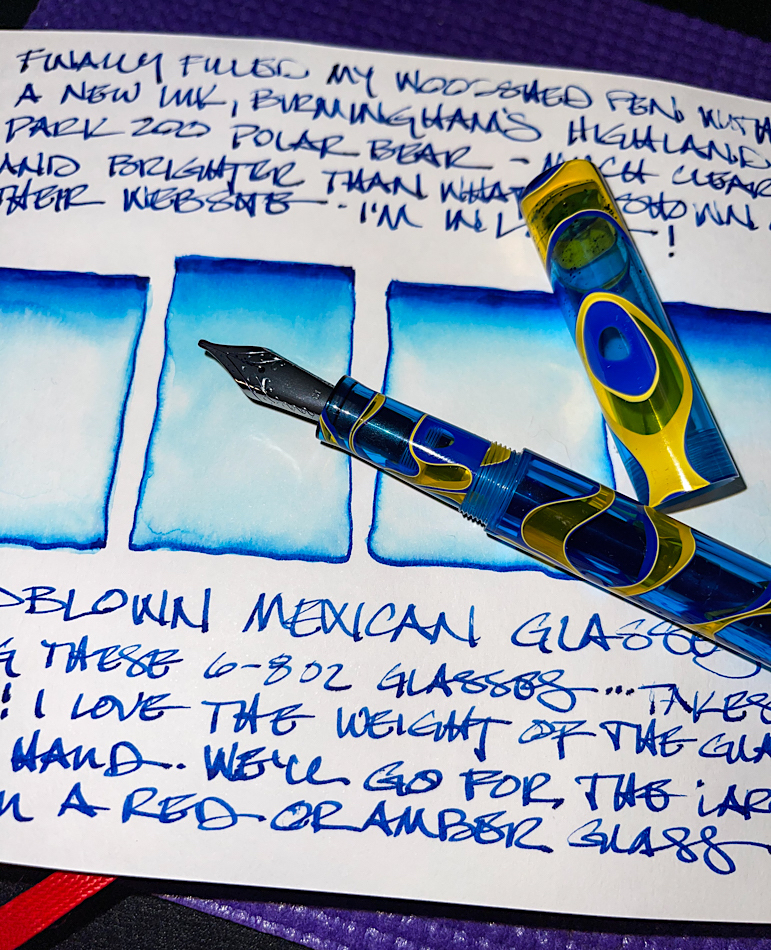 FINALLY FILLED MY WOODSHED PEN WITH
A NEW INK, BIRMINGHAM'S HIGHLAND
PARK 200 POLAR BEAR – MUCH CLEAR
AND BRIGHTER THAN WHAT SHOWN
THEIR WEBSITE.. I'M IN !
DBLOWN MEXICAN GLASSES
G THESE 6-8OZ GLASSES... TAKES
! I LOVE THE WEIGHT OF THE GLA
HAND.. WE'LL GO FOR THE LAR
A RED OR AMBER GLASS